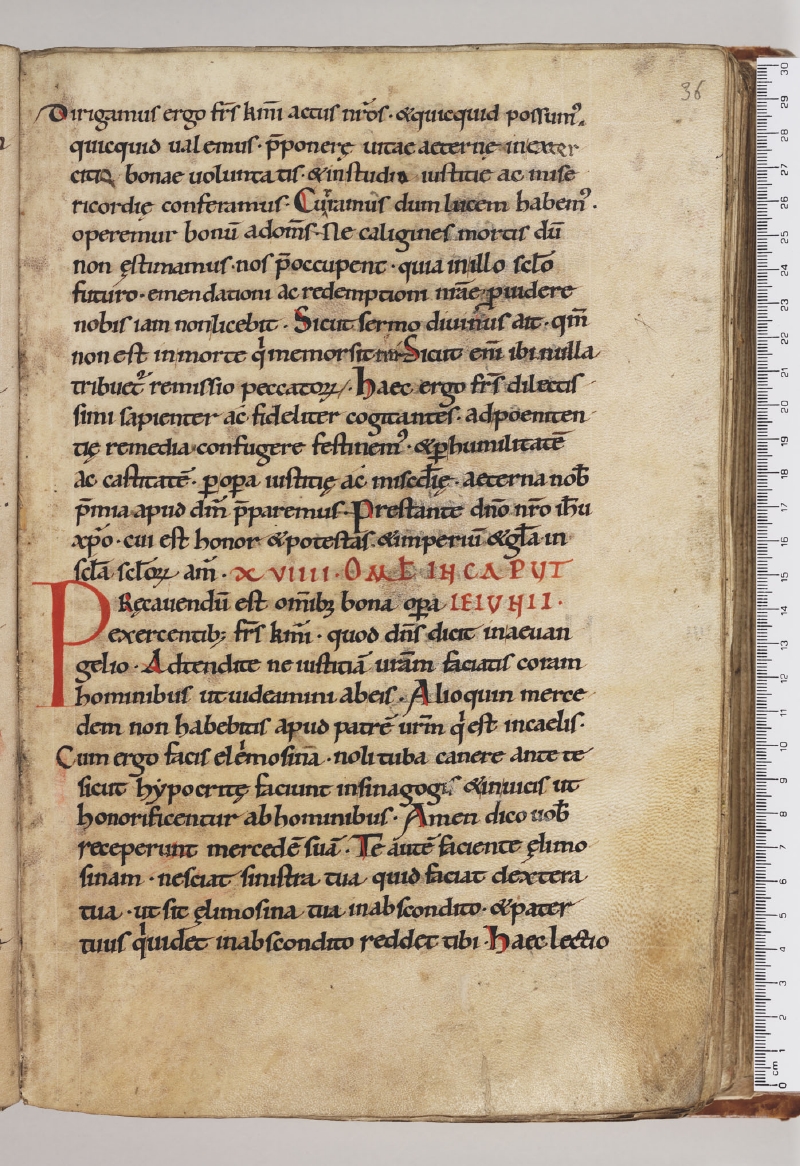 36
Dirigamus ergo fr̄s km̄i actus nr̄os · &quicquid possum᾽.
quicquid ualemus · p̄ponere uitae aeternę inexer
citiis bonae uoluntatis · &instudio iustitię ac mise
ricordię conferamus · Curramus dum lucem habem᾽ ·
operemur bonū adom̄s · Ne caligines mortis dū
non ęstimamus · nos p̄occupent · quia inillo sclo̅
futuro · emendationi ac redemptioni animae puidere
nobis iam nonlicebit · Sicut sermo diuinus ait · qm̄
non est inmorte qi memorsit tui Sicut eni̅ ibi nulla
tribuet᾽ remissio peccatoꝝ · Haec ergo fr̄s dilectis
simi sapienter ac fideliter cogitantes · adpoeniten
tię remedia confugere festinem᾽ · &ꝑhumilitatē
ac castitatē · ꝑopa iustitię ac misc̄dię · aeterna nob̄
p̄mia apud dm̄ p̄paremus · Prestante dn̄o nr̄o ih̄u
xp̄o · cui est honor &potestas &imperiū &gl̄a in
scl̄a scl̄oꝝ am̄ · XVIIII · OMĒ IN CAPUT
PRęcauendū est om̄ibꝫ bona opa IEIUNII ·
exercentibꝫ fr̄s km̄i · quod dn̄s dicit inaeuan
gelio · Adtendite ne iustitiā ur̄am faciatis coram
hominibus ut uideamini abeis · Alioquin merce
dem non habebitis apud patrē ur̄m qi est incaelis ·
Cum ergo facis elemosina̅ · noli tuba canere ante te
sicut hypocritę faciunt insinagogis &inuicis ut
honorificentur ab hominibus · Amen dico uob̄
receperunt mercedē suā · Te autē faciente ęlimo
sinam · nesciat sinistra tua quid faciat dextera
tua · ut sit ęlimosina tua inabscondito · &pater
tuus qi uidet inabscondito reddet tibi · Haec lectio